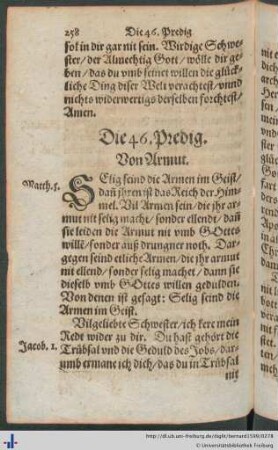 258 Die 46. Predig
sol in dir gar nit sein. Wirdige Schwe-
ster/ der Almechtig Gott/ wölle dir ge-
ben/ das du vmb seinet willen die glück-
liche Ding diser Welt verachtest/ vnnd
nichts widerwertigs derselben forchtest/
Amen.
Die 46. Predig.
Von Armut.
Matth. 5.
SElig seind die Armen im Geist/
dañ jhren ist das Reich der Him-
mel. Vil Armen sein/ die jhr ar-
mut nit selig macht/ sonder ellendt/ dañ
sie leiden die Armut nit vmb GOttes
willẽ/ sonder auß drungner noth. Dar-
gegen seind etliche Armen/ die jhr armut
nit ellend/ sonder selig machet/ dann sie
dieselb vmb GOttes willen gedulden.
Von denen ist gesagt: Selig seind die
Armen im Geist.
Vilgeliebte Schwester/ ich kere mein
Redt wider zu dir. Du hast gehört die
Jacob. 1.
Trübsal vnd die Geduld des Jobs/ dar-
umb ermane ich dich/ das du in Trübsal
nit
http://dl.ub.uni-freiburg.de/diglit/bernard1599/0278
© Universitätsbibliothek Freiburg